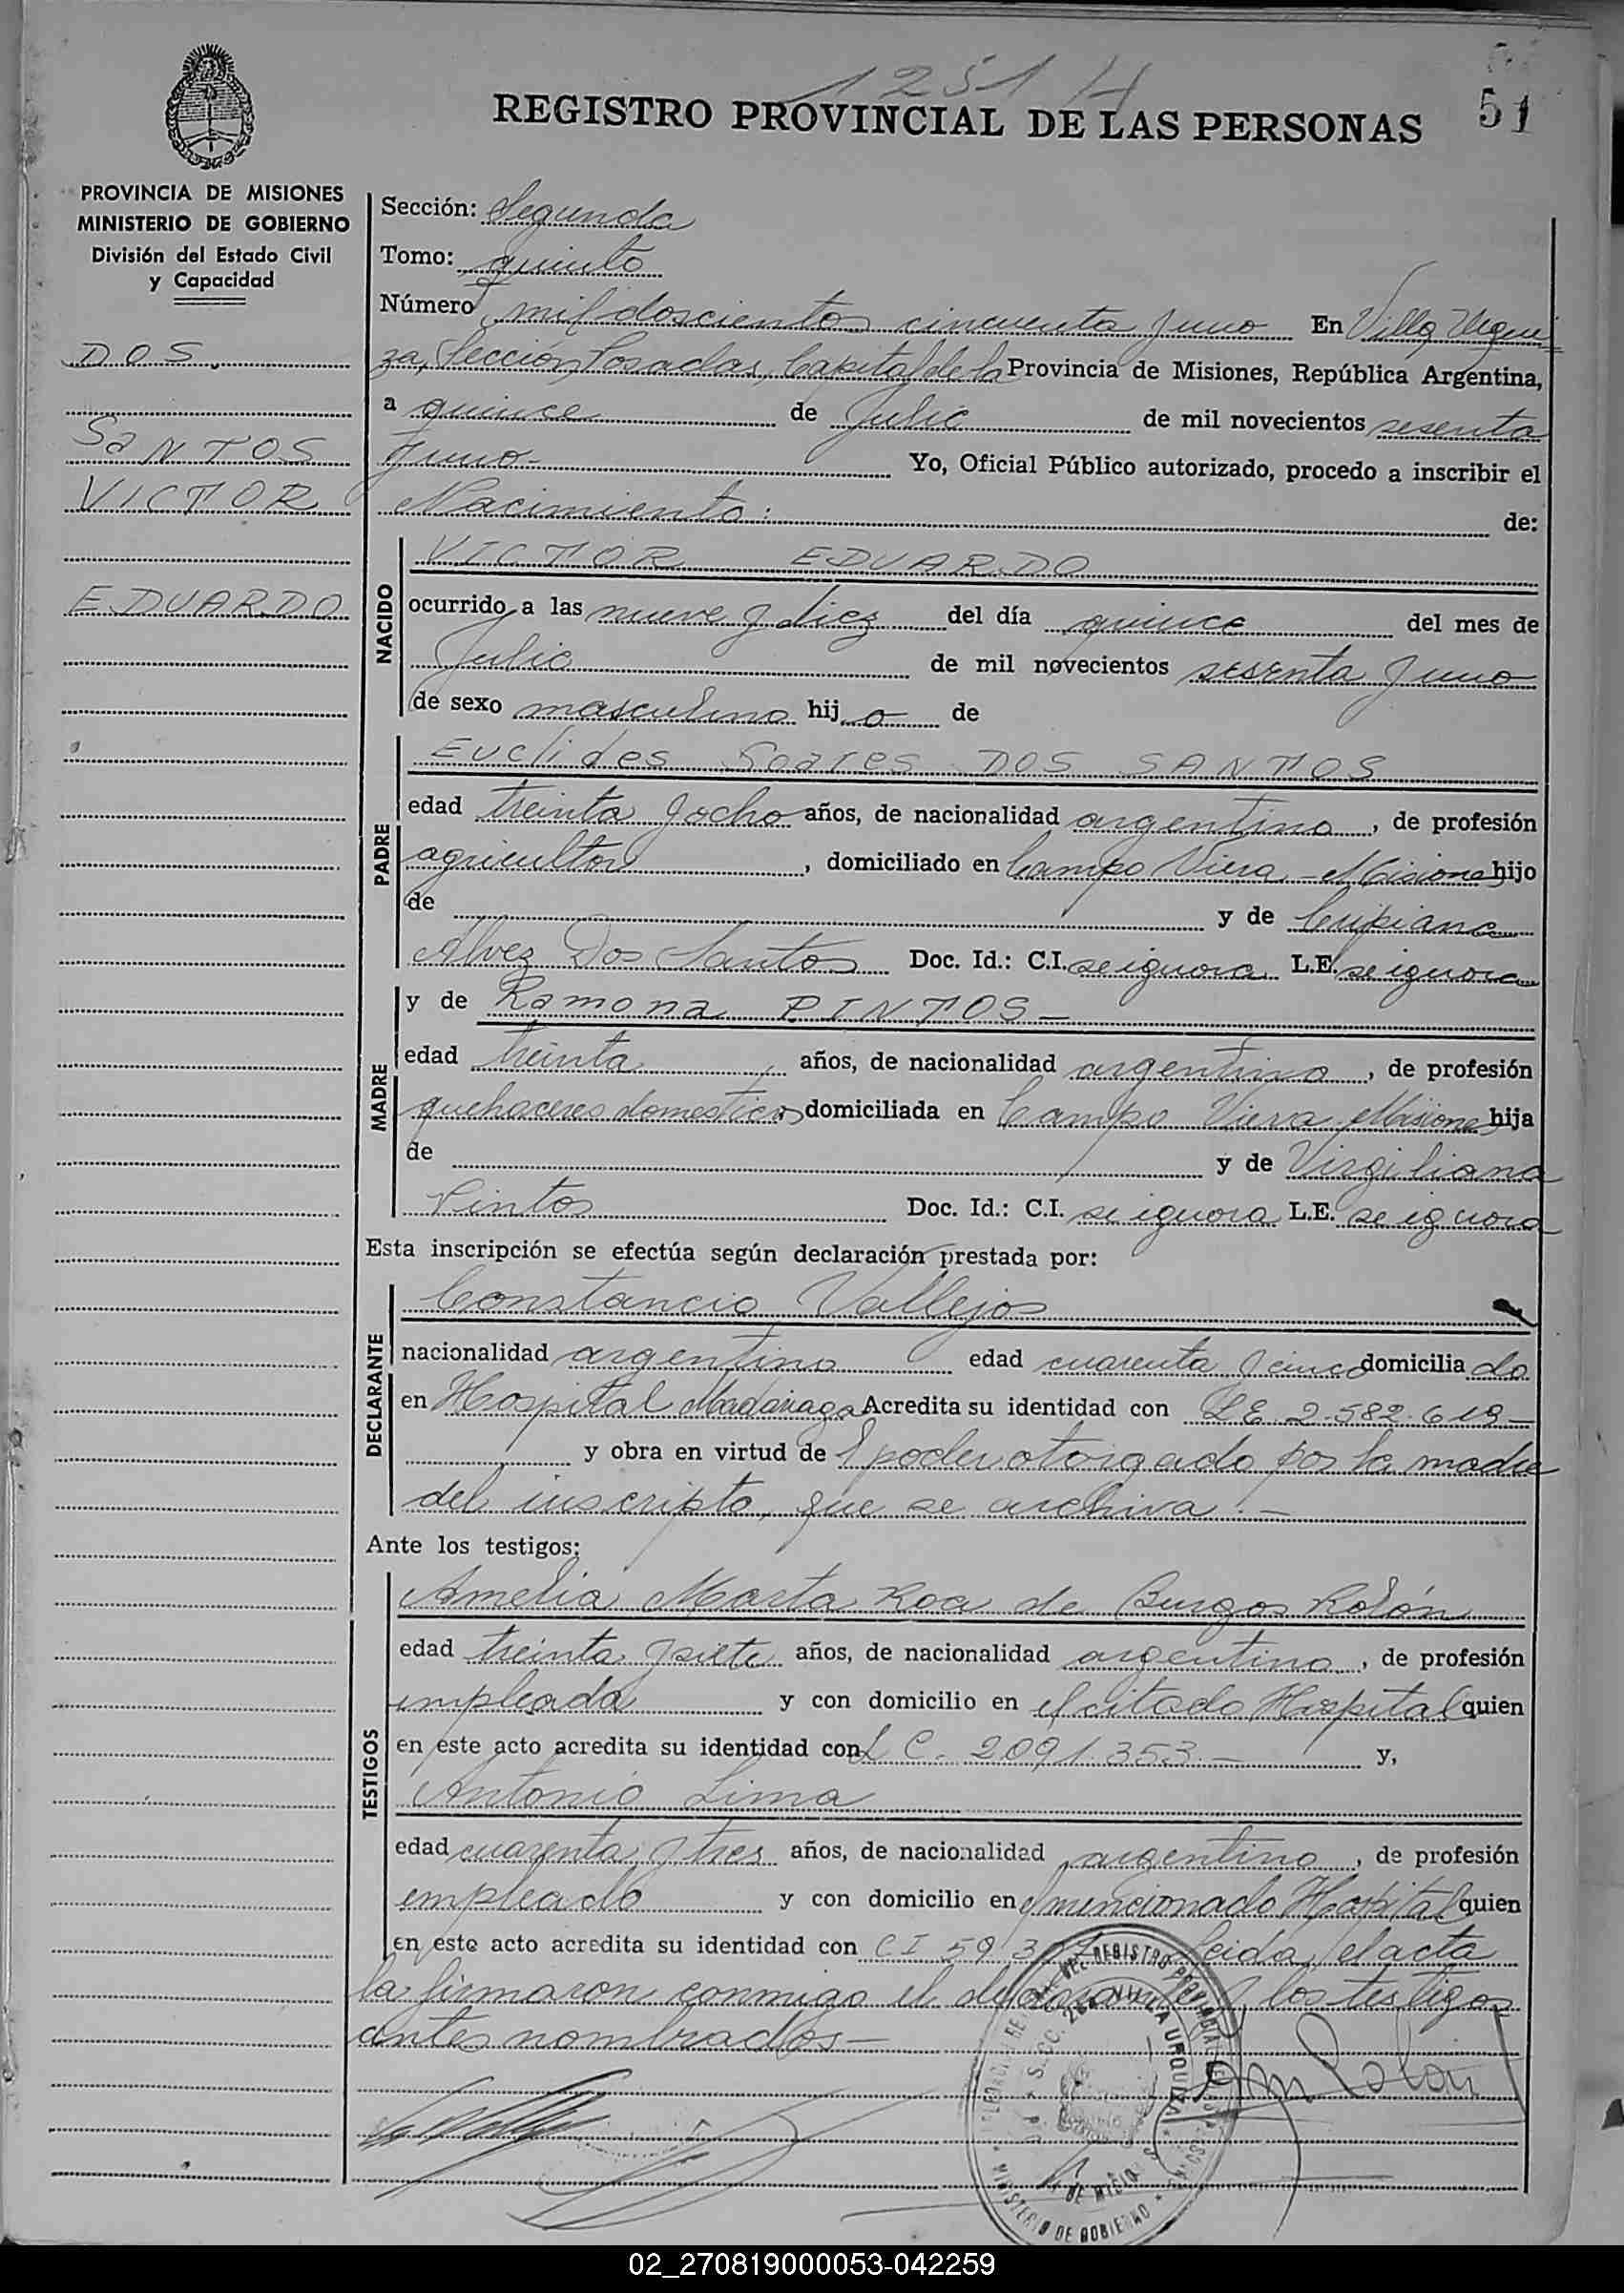 1251 H
51
REGISTRO PROVINCIAL DE LAS PERSONAS
PROVINCIA DE MISIONES
MINISTERIO DE GOBIERNO
División del Estado Civil
y Capacidad
DOS
SANTOS
VICTOR
EDUARDO
Sección: Segunda
Tomo: quinto
Número mil doscientos cincuenta y uno En Villa Urqui
za, Sección Posadas, Capital de la Provincia de Misiones, República Argentina,
a quince de Julio de mil novecientos sesenta
y uno- Yo, Oficial Público autorizado, procedo a inscribir el
Nacimiento: de:
NACIDO
VICTOR EDUARDO
ocurrido a las nueve y diez del día quince del mes de
Julio de mil novecientos sesenta y uno
de sexo masculino hijo de
PADRE
Euclides Soares DOS SANTOS
edad treinta y ocho años, de nacionalidad argentino, de profesión
agricultor, domiciliado en Campo Viera - Misiones hijo
de y de
Alvez Dos Santos Doc. Id.: C.I. se ignora L.E. se ignora
MADRE
y de Ramona PINTOS-
edad treinta años, de nacionalidad argentina, de profesión
quehaceres domesticos domiciliada en Campo Viera Misiones hija
de y de Virgiliana
Pintos Doc. Id.: C.I. se ignora L.E. se ignora
Esta inscripción se efectúa según declaración prestada por:
DECLARANTE
Constancio Vallejos
nacionalidad argentino edad cuarenta y cinco domiciliado
en Hospital Madariaga Acredita su identidad con LE 2.582.619-
y obra en virtud del poder otorgado por la madre
del inscripto, que se archiva.-
Ante los testigos:
TESTIGOS
Amelia Marta Roa de Burgos Rolón
edad treinta y siete años, de nacionalidad argentina, de profesión
empleada y con domicilio en el citado Hospital quien
en este acto acredita su identidad con L C. 2091.353.- y,
Antonio Lima
edad cuarenta y tres años, de nacionalidad argentino, de profesión
empleado y con domicilio en el mencionado Hospital quien
en este acto acredita su identidad con CI 59 Leida el acta
la firmaron conmigo el declarante y los testigos
antes nombrados-
REGISTRO PROVINCIAL
SECC. 2da VILLA URQUIZA
MINISTERIO DE GOBIERNO
02_270819000053-042259